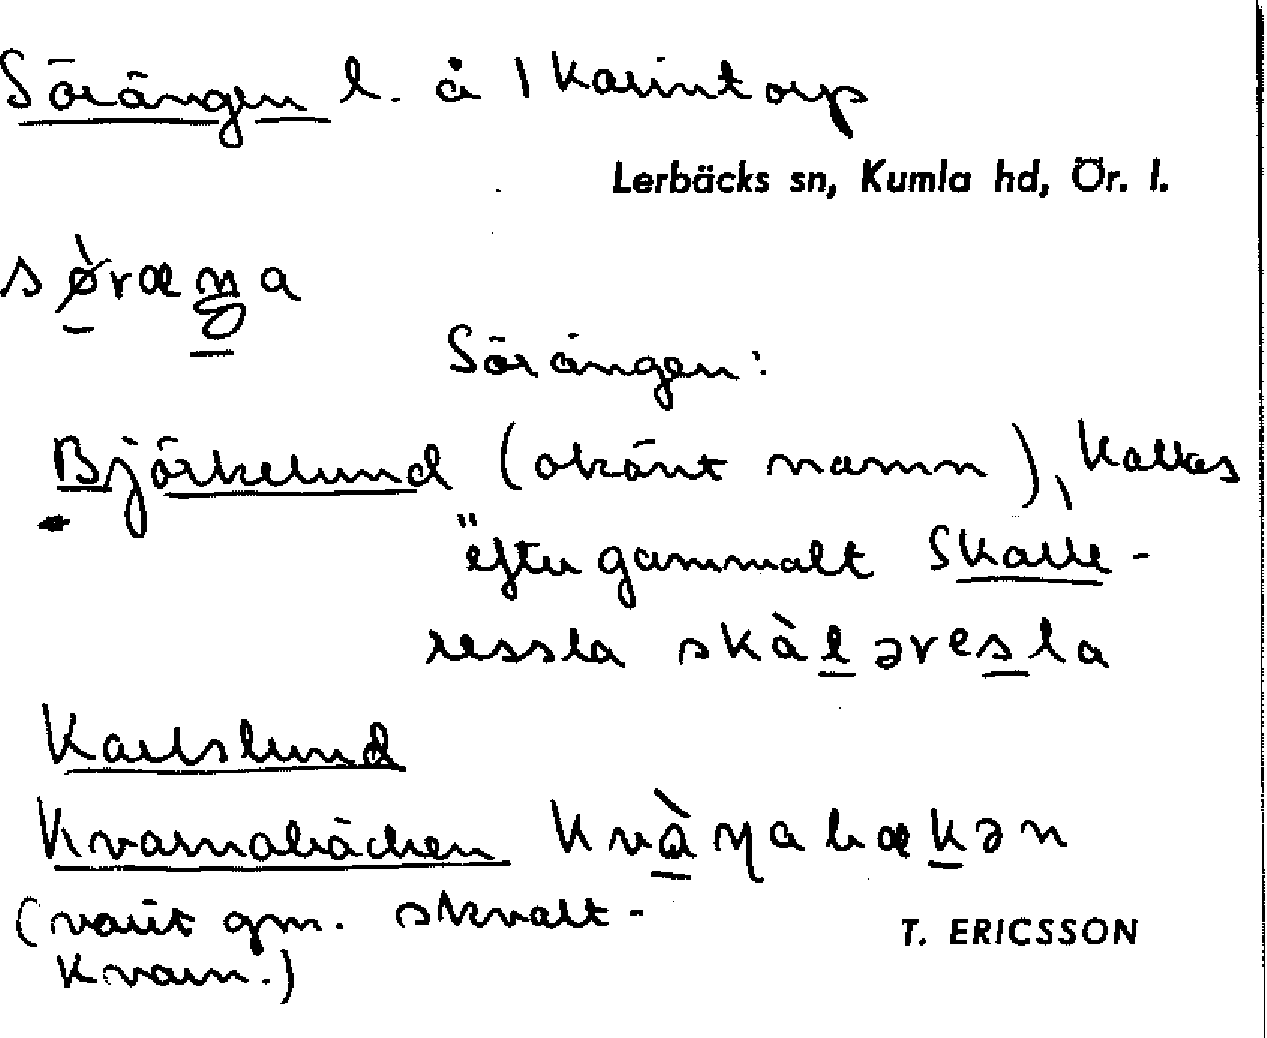 Sörängen l. å 1 Karintorp
Lerbäcks sn, Kumla hd, Ör. l.
sø̀ræŋa
Sörängen:
Björkelund (okänt namn), kallas
efter gammalt Skalle-
ressla skàləresla
Karlslund
Kvarnabäcken kvàɳabækən
(varit gm. skvalt-
kvarn.)
T. ERICSSON